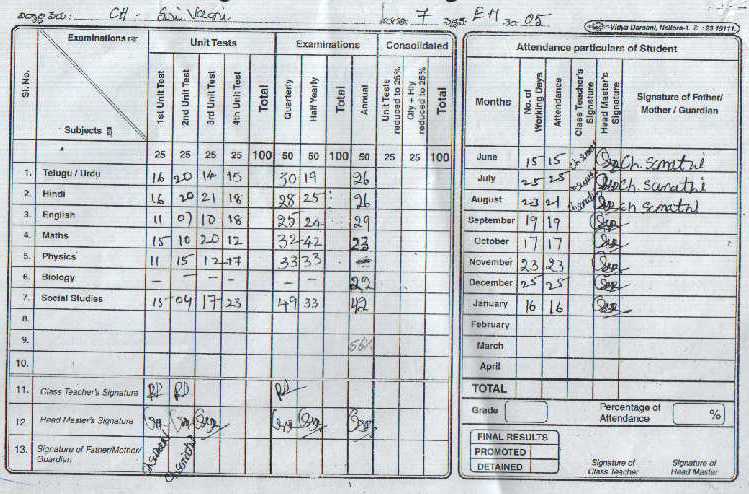 CH - 7 05
Vidya Darsani, Nellore-1.
Examinations Unit Tests Examinations Consolidated
Sl. No. Subjects 1st Unit Test 2nd Unit Test 3rd Unit Test 4th Unit Test Total Quarterly Half Yearly Total Annual Unit Tests reduced to 25% Qly + Hly reduced to 25% Total
25 25 25 25 100 50 50 100 50 25 25 100
1. Telugu / Urdu 16 20 14 15 30 19 26
2. Hindi 16 20 21 18 28 25 26
3. English 11 07 10 18 25 20 29
4. Maths 15 10 20 12 32 42 23
5. Physics 11 15 12 17 33 33
6. Biology - - - - 22
7. Social Studies 15 04 17 23 49 33 42
8.
9.
10.
11. Class Teacher's Signature
12. Head Master's Signature
13. Signature of Father/Mother/ Guardian
Attendance particulars of Student
Months No. of Working Days Attendance Class Teacher's Signature Head Master's Signature Signature of Father/ Mother / Guardian
June 15 15 Ch. Sumathi
July 25 25 Ch. Sumathi
August 23 21 Ch Sumathi
September 19 19
October 17 17
November 23 23
December 25 25
January 16 16
February
March
April
TOTAL
Grade Percentage of Attendance %
FINAL RESULTS
PROMOTED
DETAINED
Signature of Class Teacher Signature of Head Master